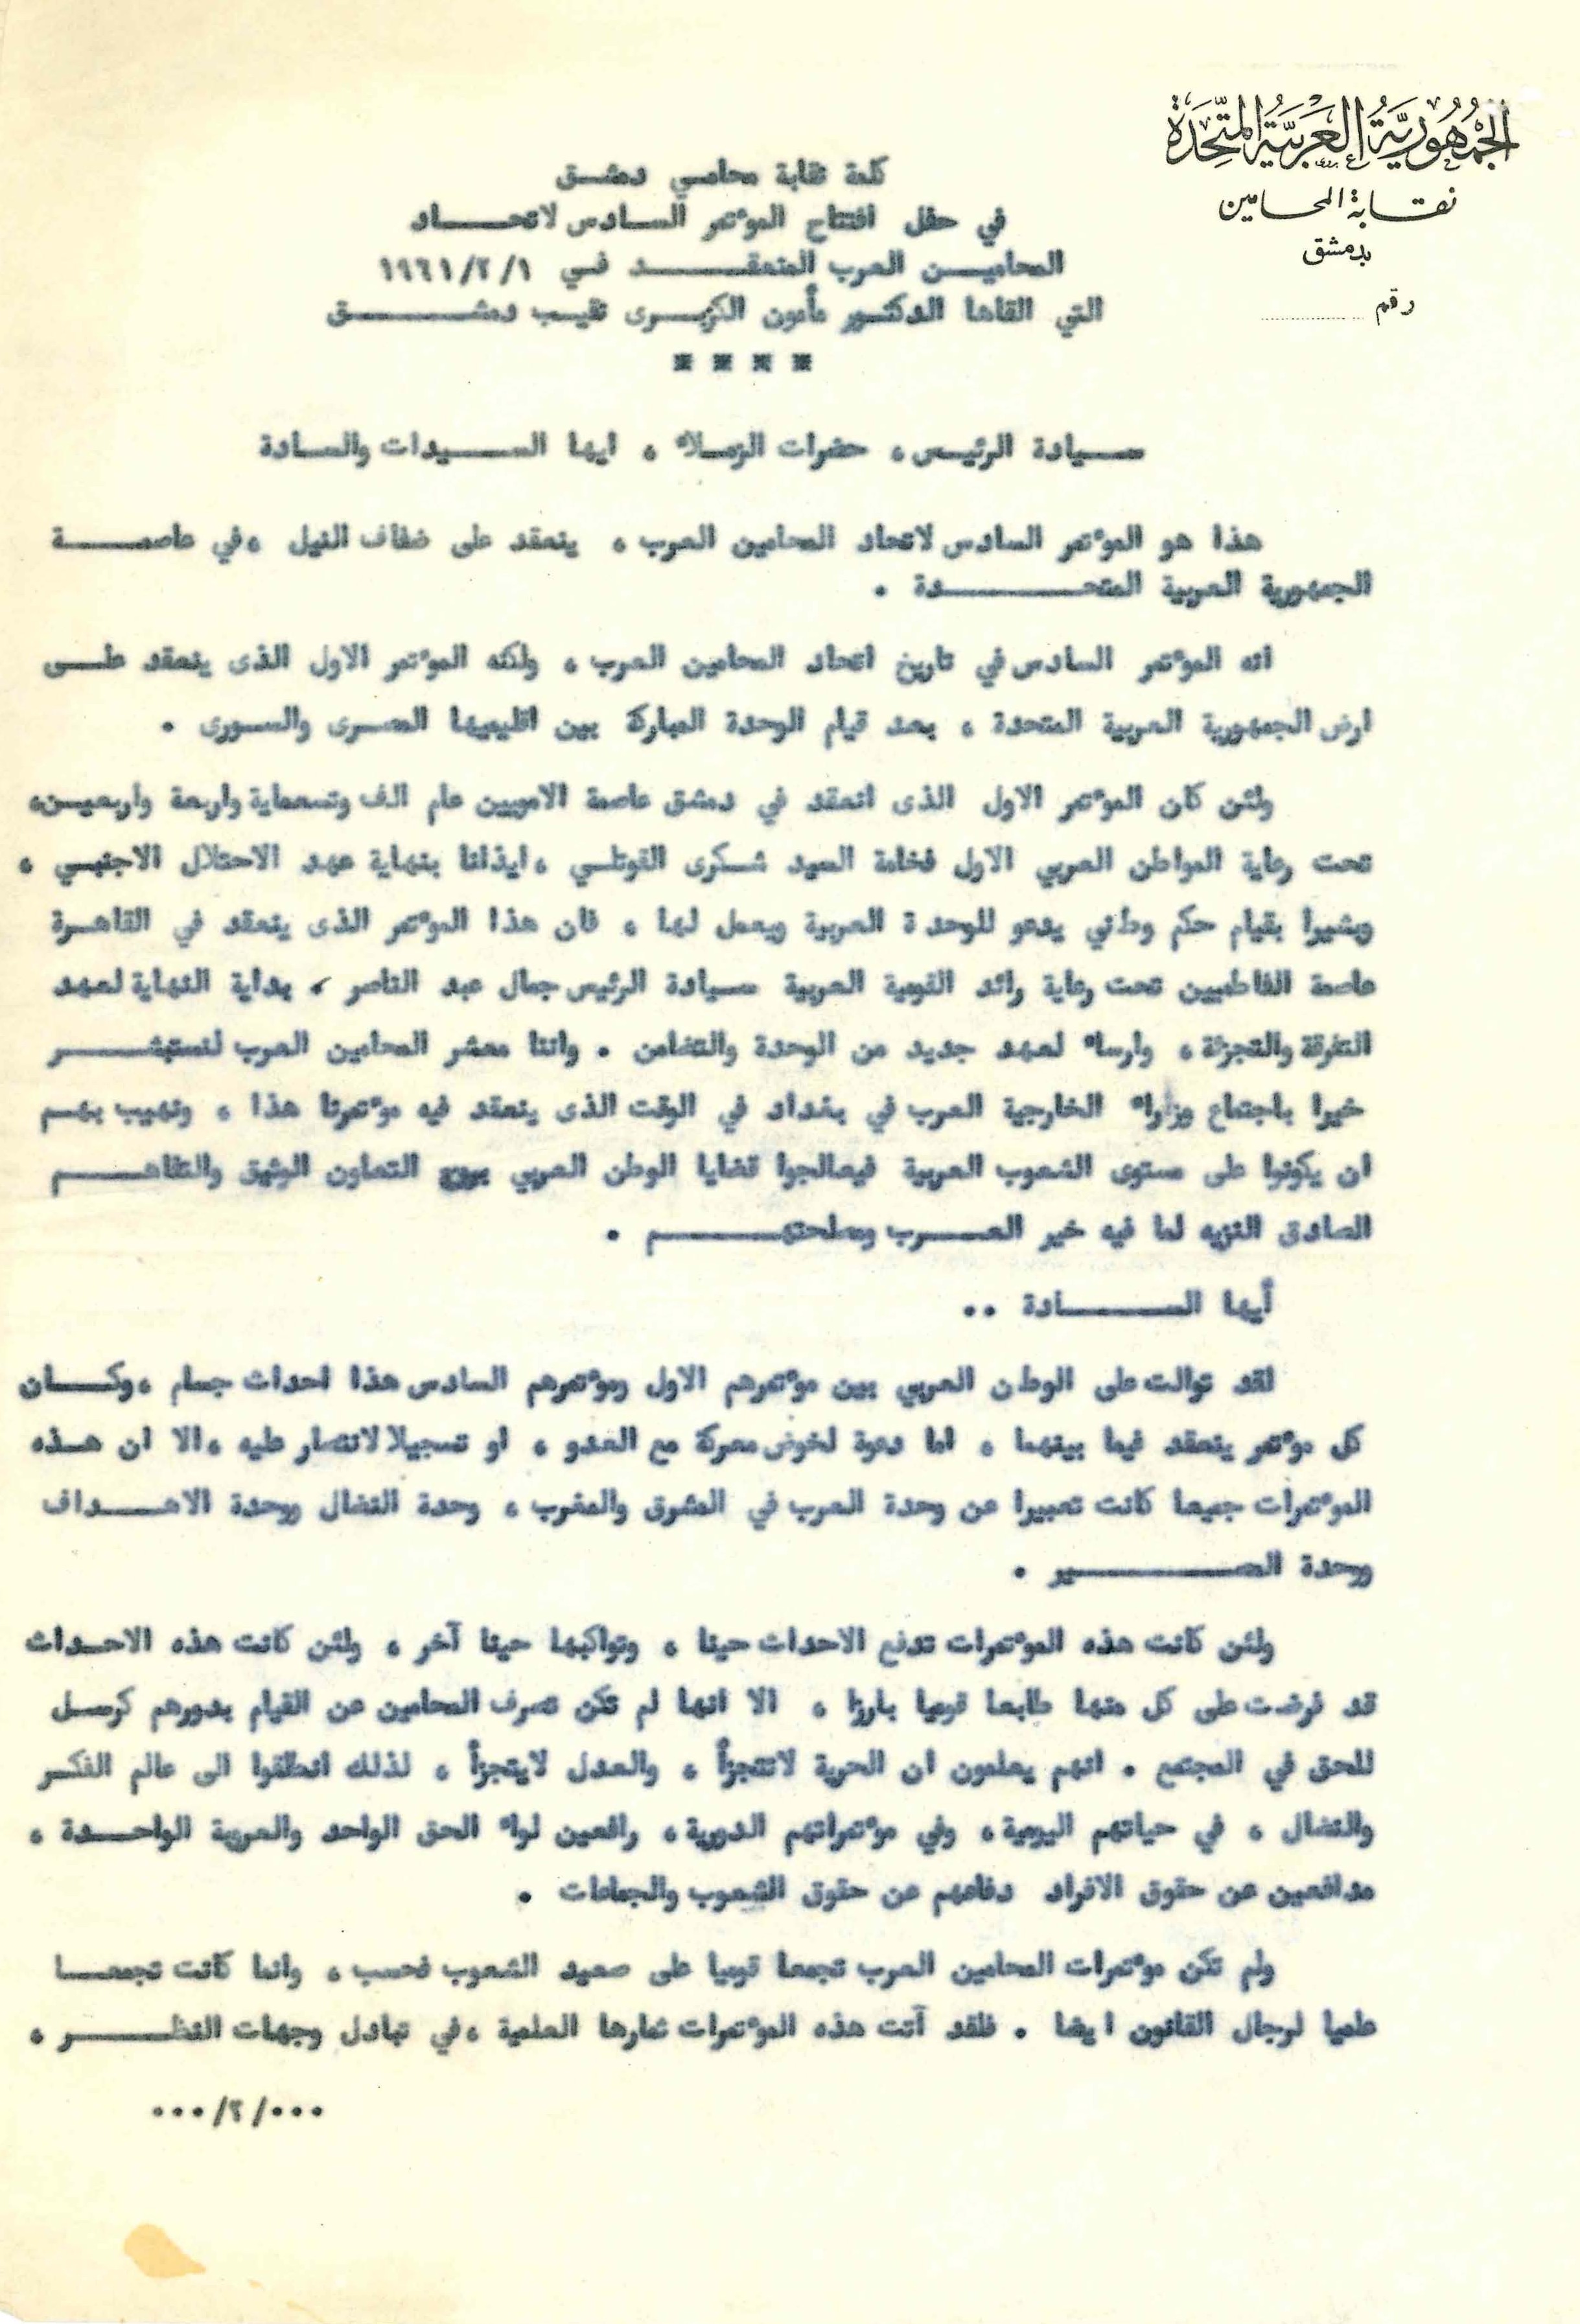 الجمهورية العربية المتحدة
نقابة المحامين
بدمشق
رقم
كلمة نقابة محامي دمشق
في حفل افتتاح المؤتمر السادس لاتحاد
المحامين العرب المنعقد في ١/٢/١٩٦١
التي القاها الدكتور مأمون الكزبرى نقيب دمشق
سيادة الرئيس، حضرات الزملاء ، ايها السيدات والسادة
هذا هو المؤتمر السادس لاتحاد المحامين العرب ، ينعقد على ضفاف النيل ،في عاصمة
الجمهورية العربية المتحدة .
انه المؤتمر السادس في تاريخ اتحاد المحامين العرب ، ولكنه المؤتمر الاول الذى ينعقد على
ارض الجمهورية العربية المتحدة ، بعد قيام الوحدة المباركة بين اقليميها المصرى والسورى .
ولئن كان المؤتمر الاول الذى انعقد في دمشق عاصمة الامويين عام الف وتسعماية واربعة واربعين،
تحت رعاية المواطن العربي الاول فخامة السيد شكرى القوتلي ،ايذانا بنهاية عهد الاحتلال الاجنبي ،
وبشيرا بقيام حكم وطني يدعو للوحدة العربية ويعمل لها ، فان هذا المؤتمر الذى ينعقد في القاهرة
عاصمة الفاطميين تحت رعاية رائد القومية العربية سيادة الرئيس جمال عبد الناصر ، بداية النهاية لعهد
التفرقة والتجزئة ، وارساء لعهد جديد من الوحدة والتضامن . واننا معشر المحامين العرب لنستبشر
خيرا باجتماع وزراء الخارجية العرب في بغداد في الوقت الذى ينعقد فيه مؤتمرنا هذا ، ونهيب بهم
ان يكونوا على مستوى الشعوب العربية فيعالجوا قضايا الوطن العربي بروح التعاون الوثيق والتفاهم
الصادق النزيه لما فيه خير العرب ومصلحتهم .
أيها السادة ..
لقد توالت على الوطن العربي بين مؤتمرهم الاول ومؤتمرهم السادس هذا احداث جسام ،وكان
كل مؤتمر ينعقد فيما بينهما ، اما دعوة لخوض معركة مع العدو ، او تسجيلا لانتصار عليه ،الا ان هذه
المؤتمرات جميعا كانت تعبيرا عن وحدة العرب في المشرق والمغرب ، وحدة النضال ووحدة الاهداف
ووحدة المصير .
ولئن كانت هذه المؤتمرات تدفع الاحداث حينا ، وتواكبها حينا آخر ، ولئن كانت هذه الاحداث
قد فرضت على كل منها طابعا قوميا بارزا ، الا انها لم تكن تصرف المحامين عن القيام بدورهم كرسل
للحق في المجتمع . انهم يعلمون ان الحرية لاتتجزأ ، والعدل لايتجزأ ، لذلك انطلقوا الى عالم الفكر
والنضال ، في حياتهم اليومية، وفي مؤتمراتهم الدورية، رافعين لواء الحق الواحد والحرية الواحدة ،
مدافعين عن حقوق الافراد دفاعهم عن حقوق الشعوب والجماعات .
ولم تكن مؤتمرات المحامين العرب تجمعا قوميا على صعيد الشعوب فحسب ، وانما كانت تجمعا
علميا لرجال القانون ايضا . فلقد آتت هذه المؤتمرات ثمارها العلمية ،في تبادل وجهات النظر ،
.../٢/...